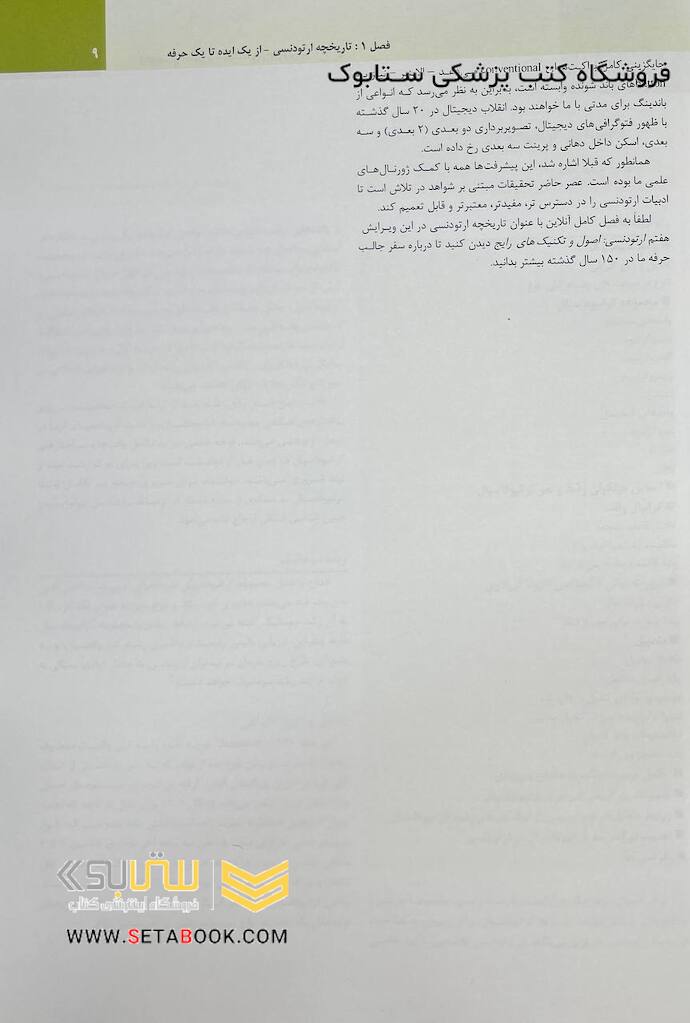 فصل ۱ : تاریخچه ارتودنسی - از یک ایده تا یک حرفه
۹
جایگزینی کامل conventional
فروشگاه کتب پزشکی ستابوک
های باند شونده وابسته است، بنابراین به نظر می‌رسد که انواعی از
باندینگ برای مدتی با ما خواهند بود. انقلاب دیجیتال در ۲۰ سال گذشته
با ظهور فتوگرافی‌های دیجیتال، تصویربرداری دو بعدی (۲ بعدی) و سه
بعدی، اسکن داخل دهانی و پرینت سه بعدی رخ داده است.
همانطور که قبلا اشاره شد، این پیشرفت‌ها همه با کمک ژورنال‌های
علمی ما بوده است. عصر حاضر تحقیقات مبتنی بر شواهد در تلاش است تا
ادبیات ارتودنسی را در دسترس تر، مفیدتر، معتبرتر و قابل تعمیم کند.
لطفا به فصل کامل آنلاین با عنوان تاریخچه ارتودنسی در این ویرایش
هفتم ارتودنسی: اصول و تکنیک های رایج دیدن کنید تا درباره سفر جالب
حرفه ما در ۱۵۰ سال گذشته بیشتر بدانید.
ستابوک
فروشگاه اینترنتی کتاب
WWW.SETABOOK.COM